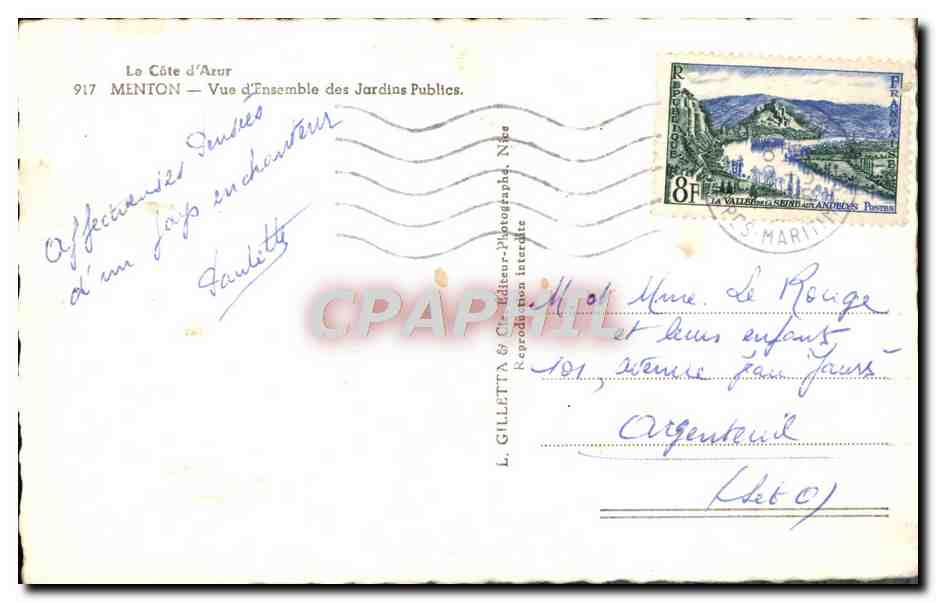 La Côte d'Azur
917 MENTON — Vue d'Ensemble des Jardins Publics.
Affectueuses Pensées
d'un pays enchanteur
Paulette
L. GILLETTA & Cie, Editeur-Photographe, Nice
Reproduction interdite
REPUBLIQUE FRANCAISE
8F
LA VALLEE DE LA SEINE AUX ANDELYS POSTES
PES-MARITIM
CPAPHIL
M et Mme. Le Rouge
et leurs enfants
101, avenue Jean Jaurès
Argenteuil
(S et O)